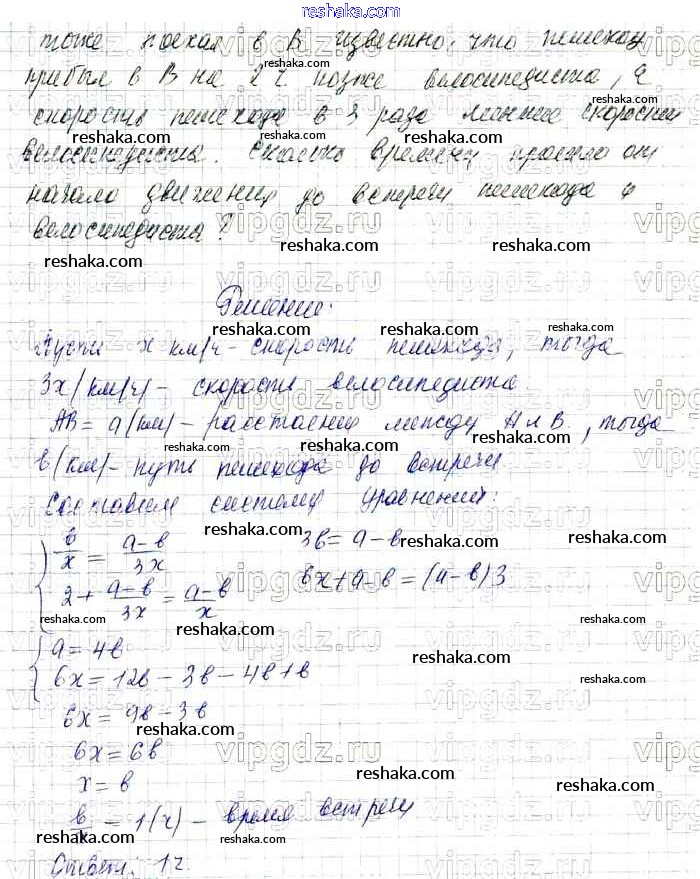 reshaka.com
тоже поехал в В. Известно, что пешеход
прибыл в В на 2 ч. позже велосипедиста, а
скорость пешехода в 3 раза меньше скорости
велосипедиста. Сколько времени прошло от
начала движения до встречи пешехода и
велосипедиста?
Решение:
Пусть x км/ч - скорость пешехода, тогда
3x (км/ч) - скорость велосипедиста.
AB = a (км) - расстояние между A и B, тогда
b (км) - путь пешехода до встречи.
Составим систему уравнений:
b/x = (a-b)/3x 3b = a-b
2 + (a-b)/3x = (a-b)/x 6x+a-b = (a-b)3
a = 4b
6x = 12b - 3b - 4b + b
6x = 9b - 3b
6x = 6b
x = b
b/x = 1 (ч) - время встречи
Ответ: 1 ч.